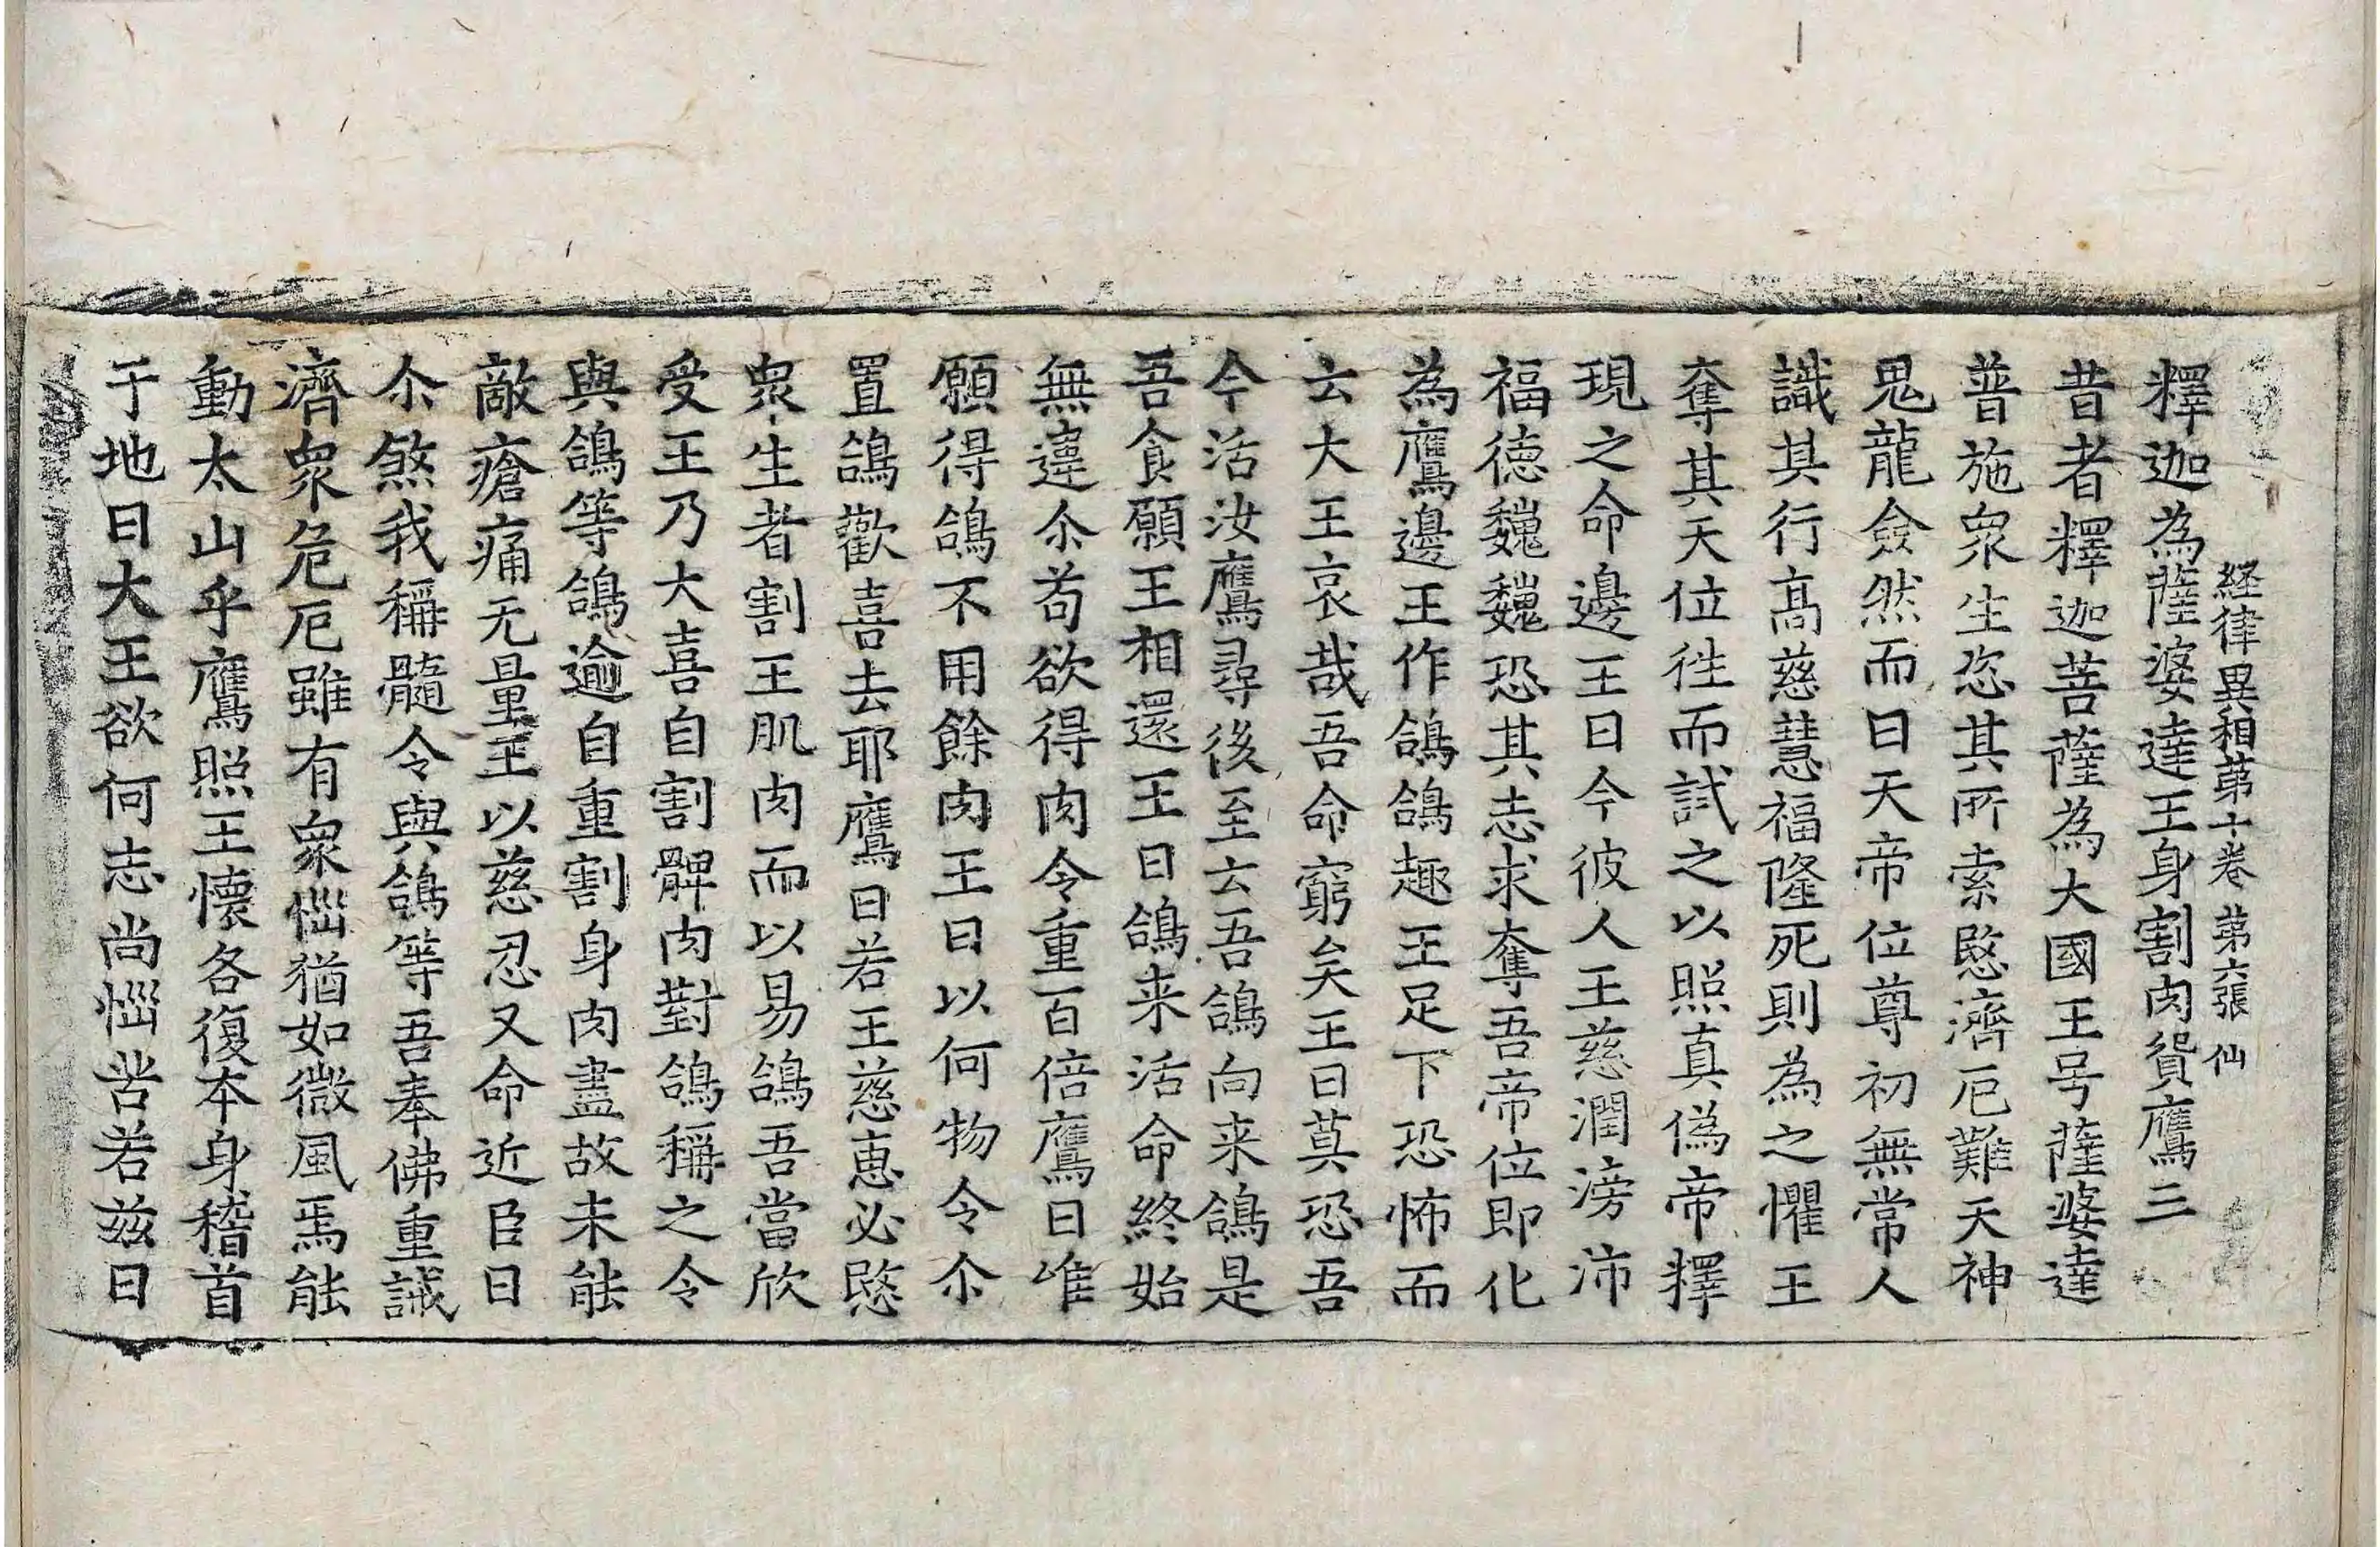 経律異相第十卷　第六張　仙
釋迦為薩婆達王身割肉貿鷹三
昔者釋迦菩薩為大國王号薩婆達
普施衆生恣其所索愍濟厄難天神
鬼龍僉然而曰天帝位尊初無常人
識其行髙慈慧福隆死則為之懼王
奪其天位徃而試之以照真偽帝釋
現之命邊王曰今彼人王慈潤滂沛
福徳巍巍恐其志求奪吾帝位即化
為鷹邊王作鴿鴿趣王足下恐怖而
云大王哀哉吾命窮矣王曰莫恐吾
今活汝鷹尋後至云吾鴿向来鴿是
吾食願王相還王曰鴿来活命終始
無違尒苟欲得肉令重百倍鷹曰唯
願得鴿不用餘肉王曰以何物令尒
置鴿歡喜去耶鷹曰若王慈恵必愍
衆生者割王肌肉而以易鴿吾當欣
受王乃大喜自割髀肉對鴿稱之令
與鴿等鴿逾自重割身肉盡故未能
敵瘡痛无量王以慈忍又命近臣曰
尒煞我稱髓令與鴿等吾奉佛重誡
濟衆危厄雖有衆惱猶如微風焉能
動太山乎鷹照王懷各復本身稽首
于地曰大王欲何志尚惱苦若茲曰